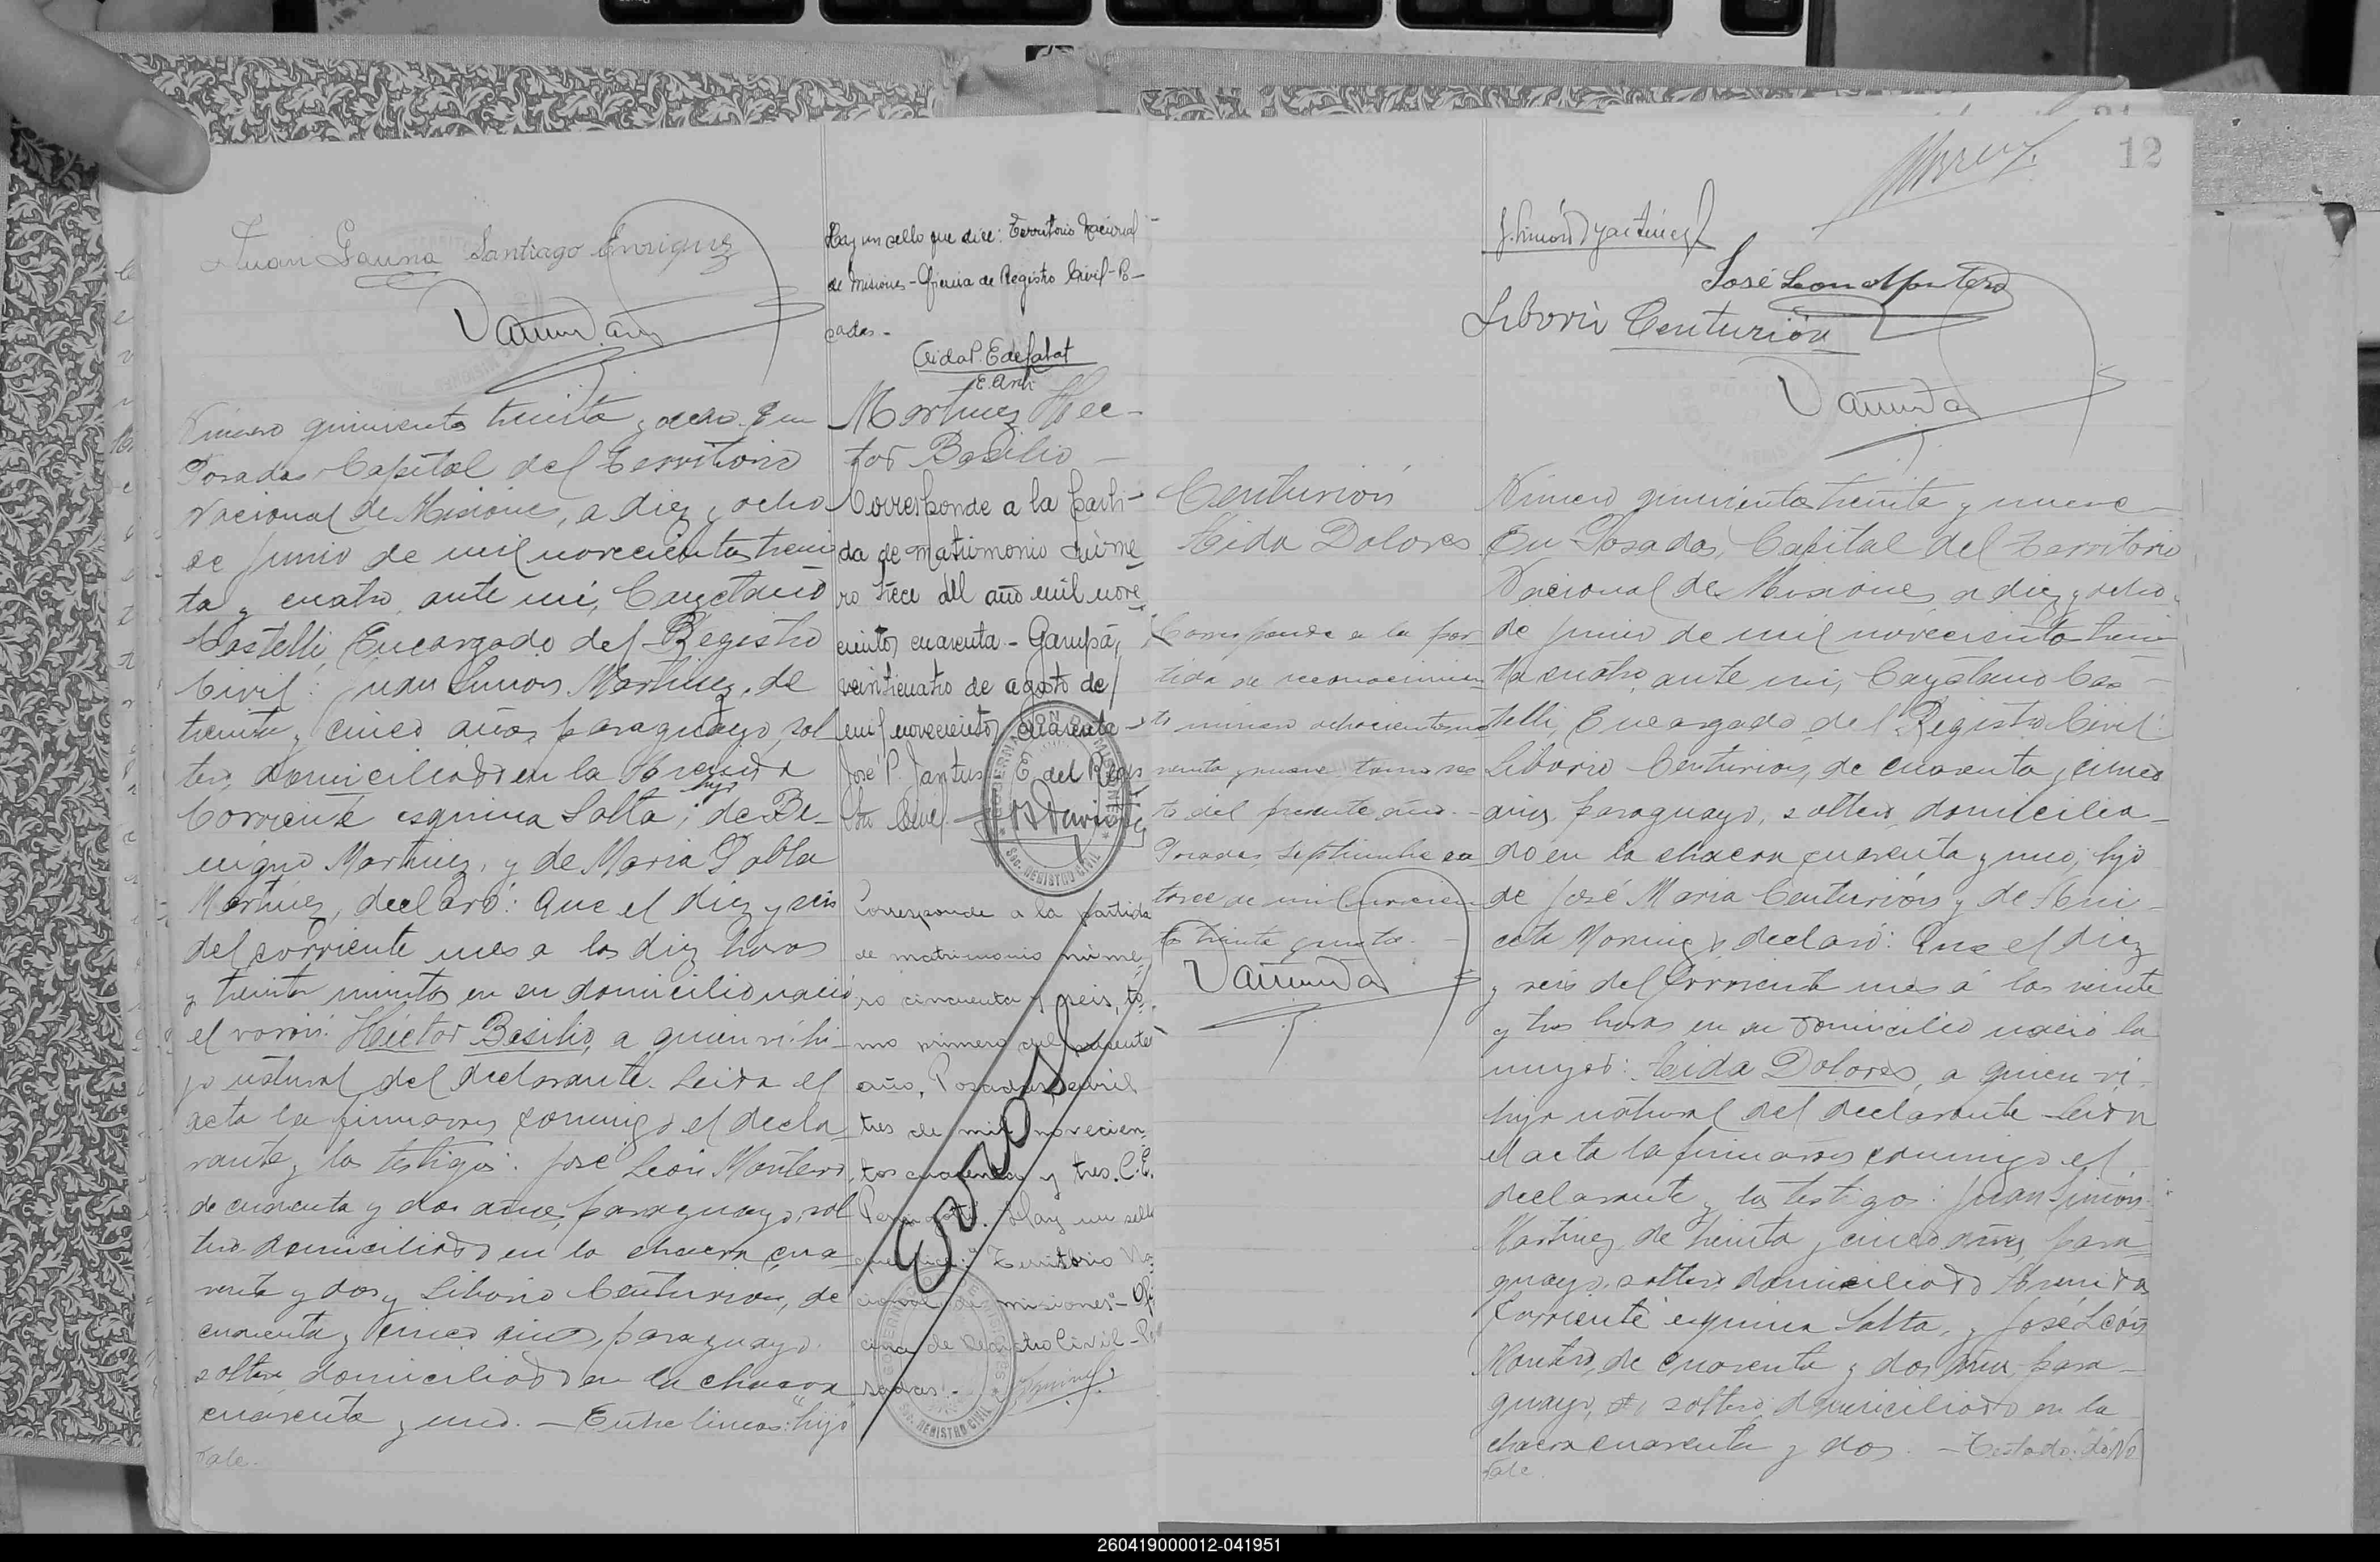 Juan Gauna Santiago Enriquez
Número quinientos treinta y ocho. En
Posadas Capital del Territorio
Nacional de Misiones, a diez y ocho
de Junio de mil novecientos trein
ta y cuatro, ante mi, Cayetano
Castelli, Encargado del Registro
Civil: Juan Simon Martinez, de
treinta y cinco años, paraguayo, sol
tero, domiciliado en la Avenida
hijo
Corriente esquina Salta; de Be-
nigno Martinez, y de Maria Pabla
Martinez, declaró: Que el diez y seis
del corriente mes a las diez horas
y treinta minutos en su domicilio nació
el varón: Héctor Basilio, a quien vi: hi-
jo natural del declarante. Leida el
acta la firmaron conmigo el decla-
rante y los testigos: José León Montero,
de cuarenta y dos años, paraguayo, sol
tero domiciliado en la chacra cua-
renta y dos y Liborio Centurión, de
cuarenta y cinco años, paraguayo,
soltero domiciliado en la chacra
cuarenta y uno. — Entre lineas: "hijo"
Vale.
Hay un sello que dice: Territorio Nacional
de Misiones - Oficina de Registro Civil - Po-
sadas -
Martinez Hec-
tor Basilio
Corresponde a la parti-
da de matrimonio núme-
ro trece del año mil nove-
cientos cuarenta - Garupá,
veinticuatro de agosto de
mil novecientos cuarenta -
José P. Jantus E. del Regis
tro Civil
GOBERNACION DE MISIONES
Sec. REGISTRO CIVIL
Corresponde a la partida
de matrimonio núme-
ro cincuenta y seis, to-
mo primero del presente
año. Posadas, abril
tres de mil novecien-
tos cuarenta y tres. C.E.
Hay un sello
que dice: "Territorio Na-
cional de Misiones" - Ofi
cina de Registro Civil - Po
sadas". -
GOBERNACION DE MISIONES
Sec. REGISTRO CIVIL
12
José Leon Montero
Liborio Centurión
Centurión
Aida Dolores
Corresponde a la par
tida de reconocimien
to número ochocientos no
venta y nueve tomo sex
to del presente año. -
Posadas, Septiembre ca
torce de mil novecien
tos treinta y cuatro. -
Número quinientos treinta y nueve
En Posadas, Capital del Territorio
Nacional de Misiones a diez y ocho
de junio de mil novecientos trein
ta cuatro, ante mi, Cayetano Cas-
telli, Encargado del Registro Civil:
Liborio Centurion, de cuarenta y cinco
años, paraguayo, soltero, domicilia-
do en la chacra cuarenta y uno; hijo
de José Maria Centurión y de Ani-
ceta Moringo, declaró: Que el diez
y seis del corriente mes a las veinte
y tres horas en su domicilio nació la
mujer: Aida Dolores, a quien vi,
hija natural del declarante - Leida
el acta la firmaron conmigo el
declarante y los testigos: Juan Simón
Martinez de treinta y cinco años, para-
guayo, soltero domiciliado Avenida
Corriente esquina Salta, y José León
Montero, de cuarenta y dos años para-
guayo, soltero domiciliado en la
chacra cuarenta y dos. - Testado: "do" No
Vale.
260419000012-041951